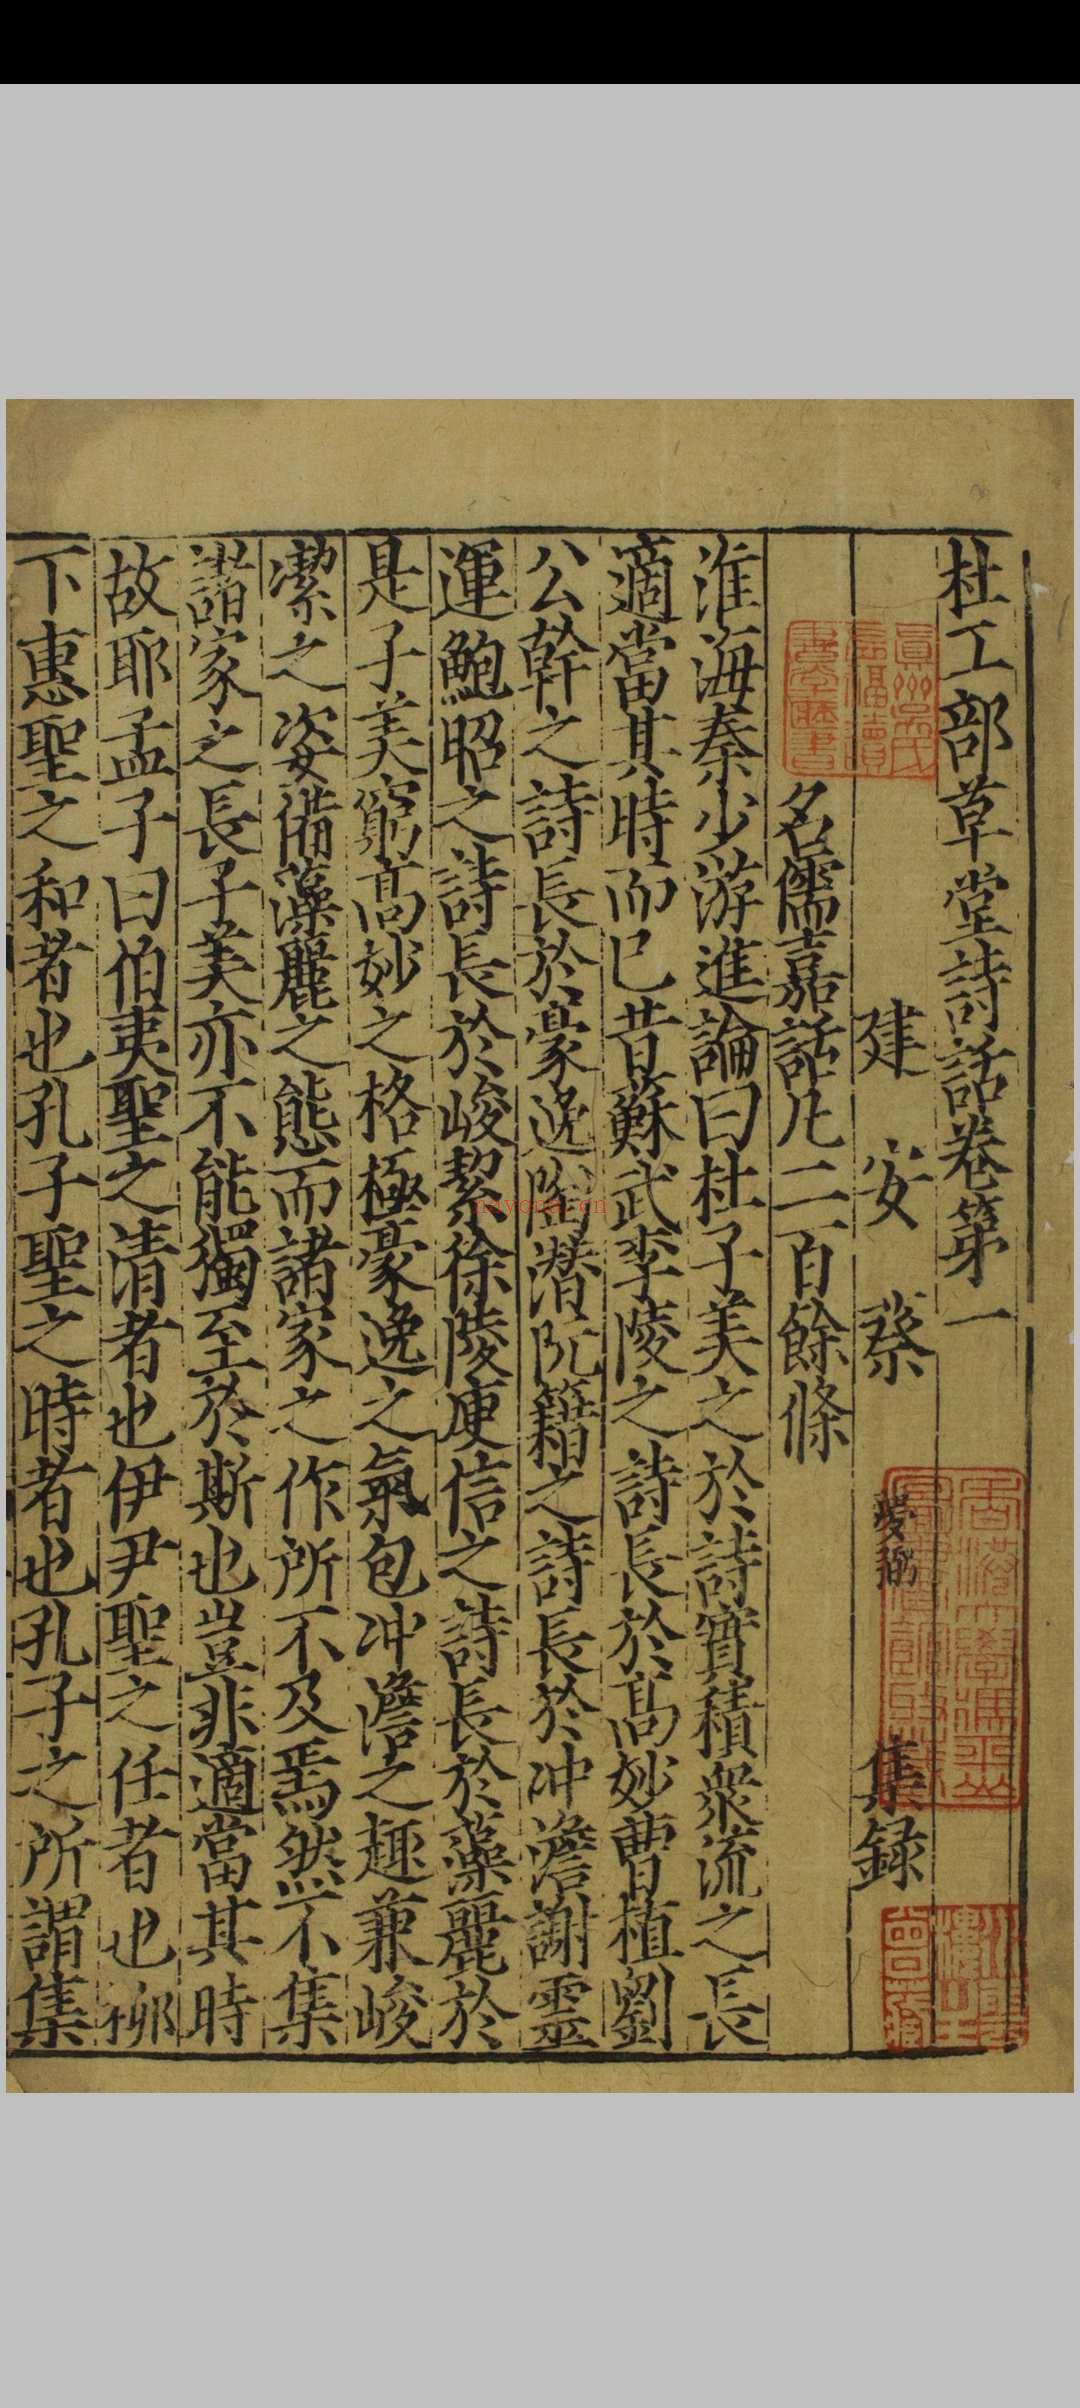 杜工部草堂詩話卷第一
建安蔡夢弼集録
名儒嘉話凡二百餘條
淮海秦少游進論曰杜子美之於詩實積衆流之長
適當其時而已昔蘇武李陵之詩長於髙妙曹植劉
公幹之詩長於豪逸陶潛阮籍之詩長於冲澹謝靈
運鮑昭之詩長於峻㓗徐陵庾信之詩長於藻麗於
是子美窮髙妙之格極豪逸之氣包冲澹之趣兼峻
潔之姿備藻麗之態而諸家之作所不及焉然不集
諸家之長子美亦不能獨至於斯也豈非適當其時
故耶孟子曰伯夷聖之清者也伊尹聖之任者也栁
下惠聖之和者也孔子聖之時者也孔子之所謂集
nayona.cn